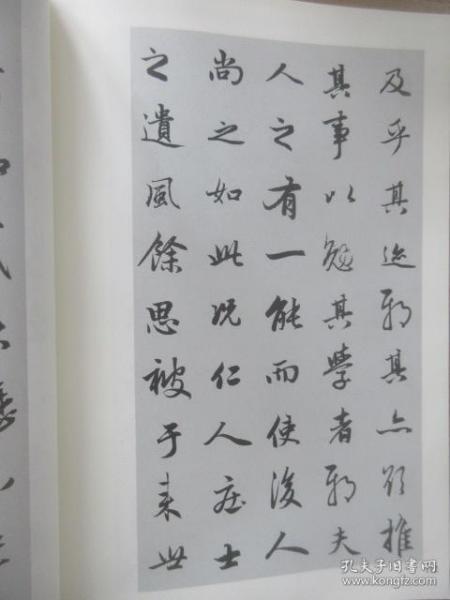 及乎其迹邪其亦欲推
其事以勉其學者邪夫
人之有一能而使後人
尚之如此况仁人庄士
之遺風餘思被于来世
孔夫子旧书网
www.kongfz.com